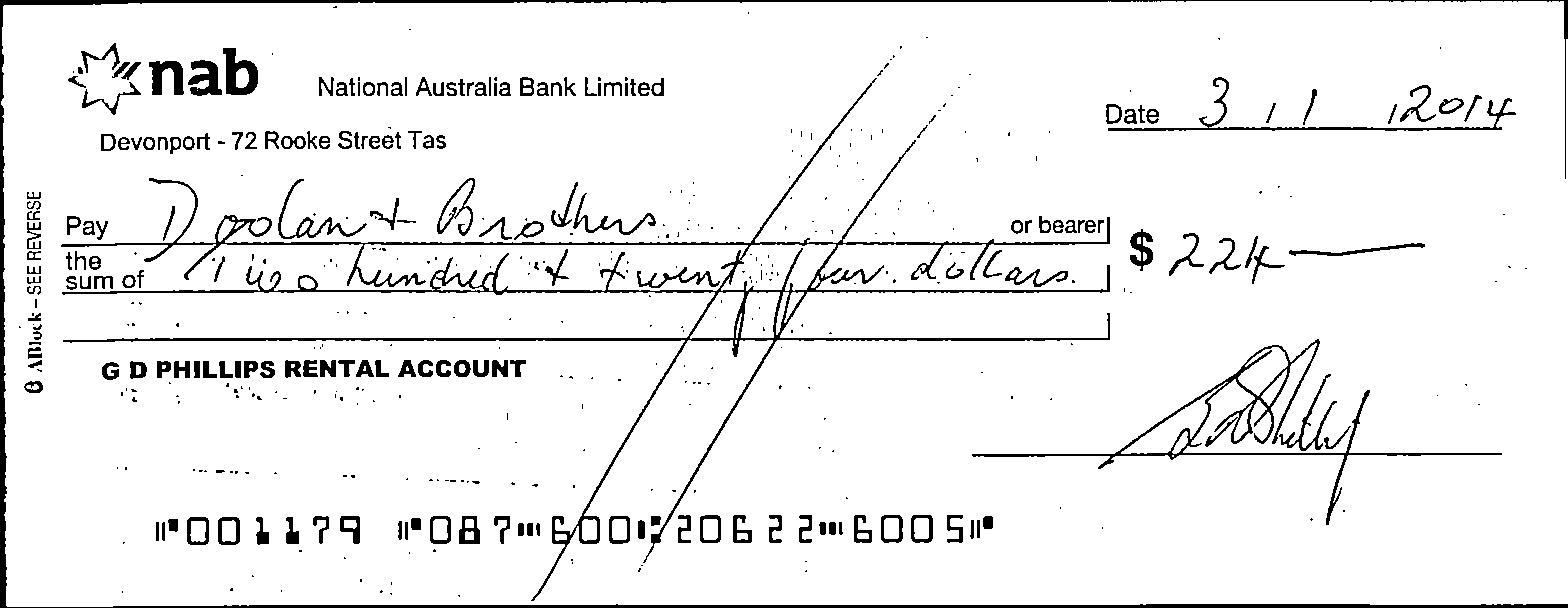 nab
National Australia Bank Limited
Devonport - 72 Rooke Street Tas
Date 3 / 1 / 2014
Pay Doolan + Brothers or bearer
the sum of Two hundred + twenty four dollars. $ 224 —
G D PHILLIPS RENTAL ACCOUNT
ABlock – SEE REVERSE
⑈001179 ⑈087⑉600⑆20622⑉6005⑈